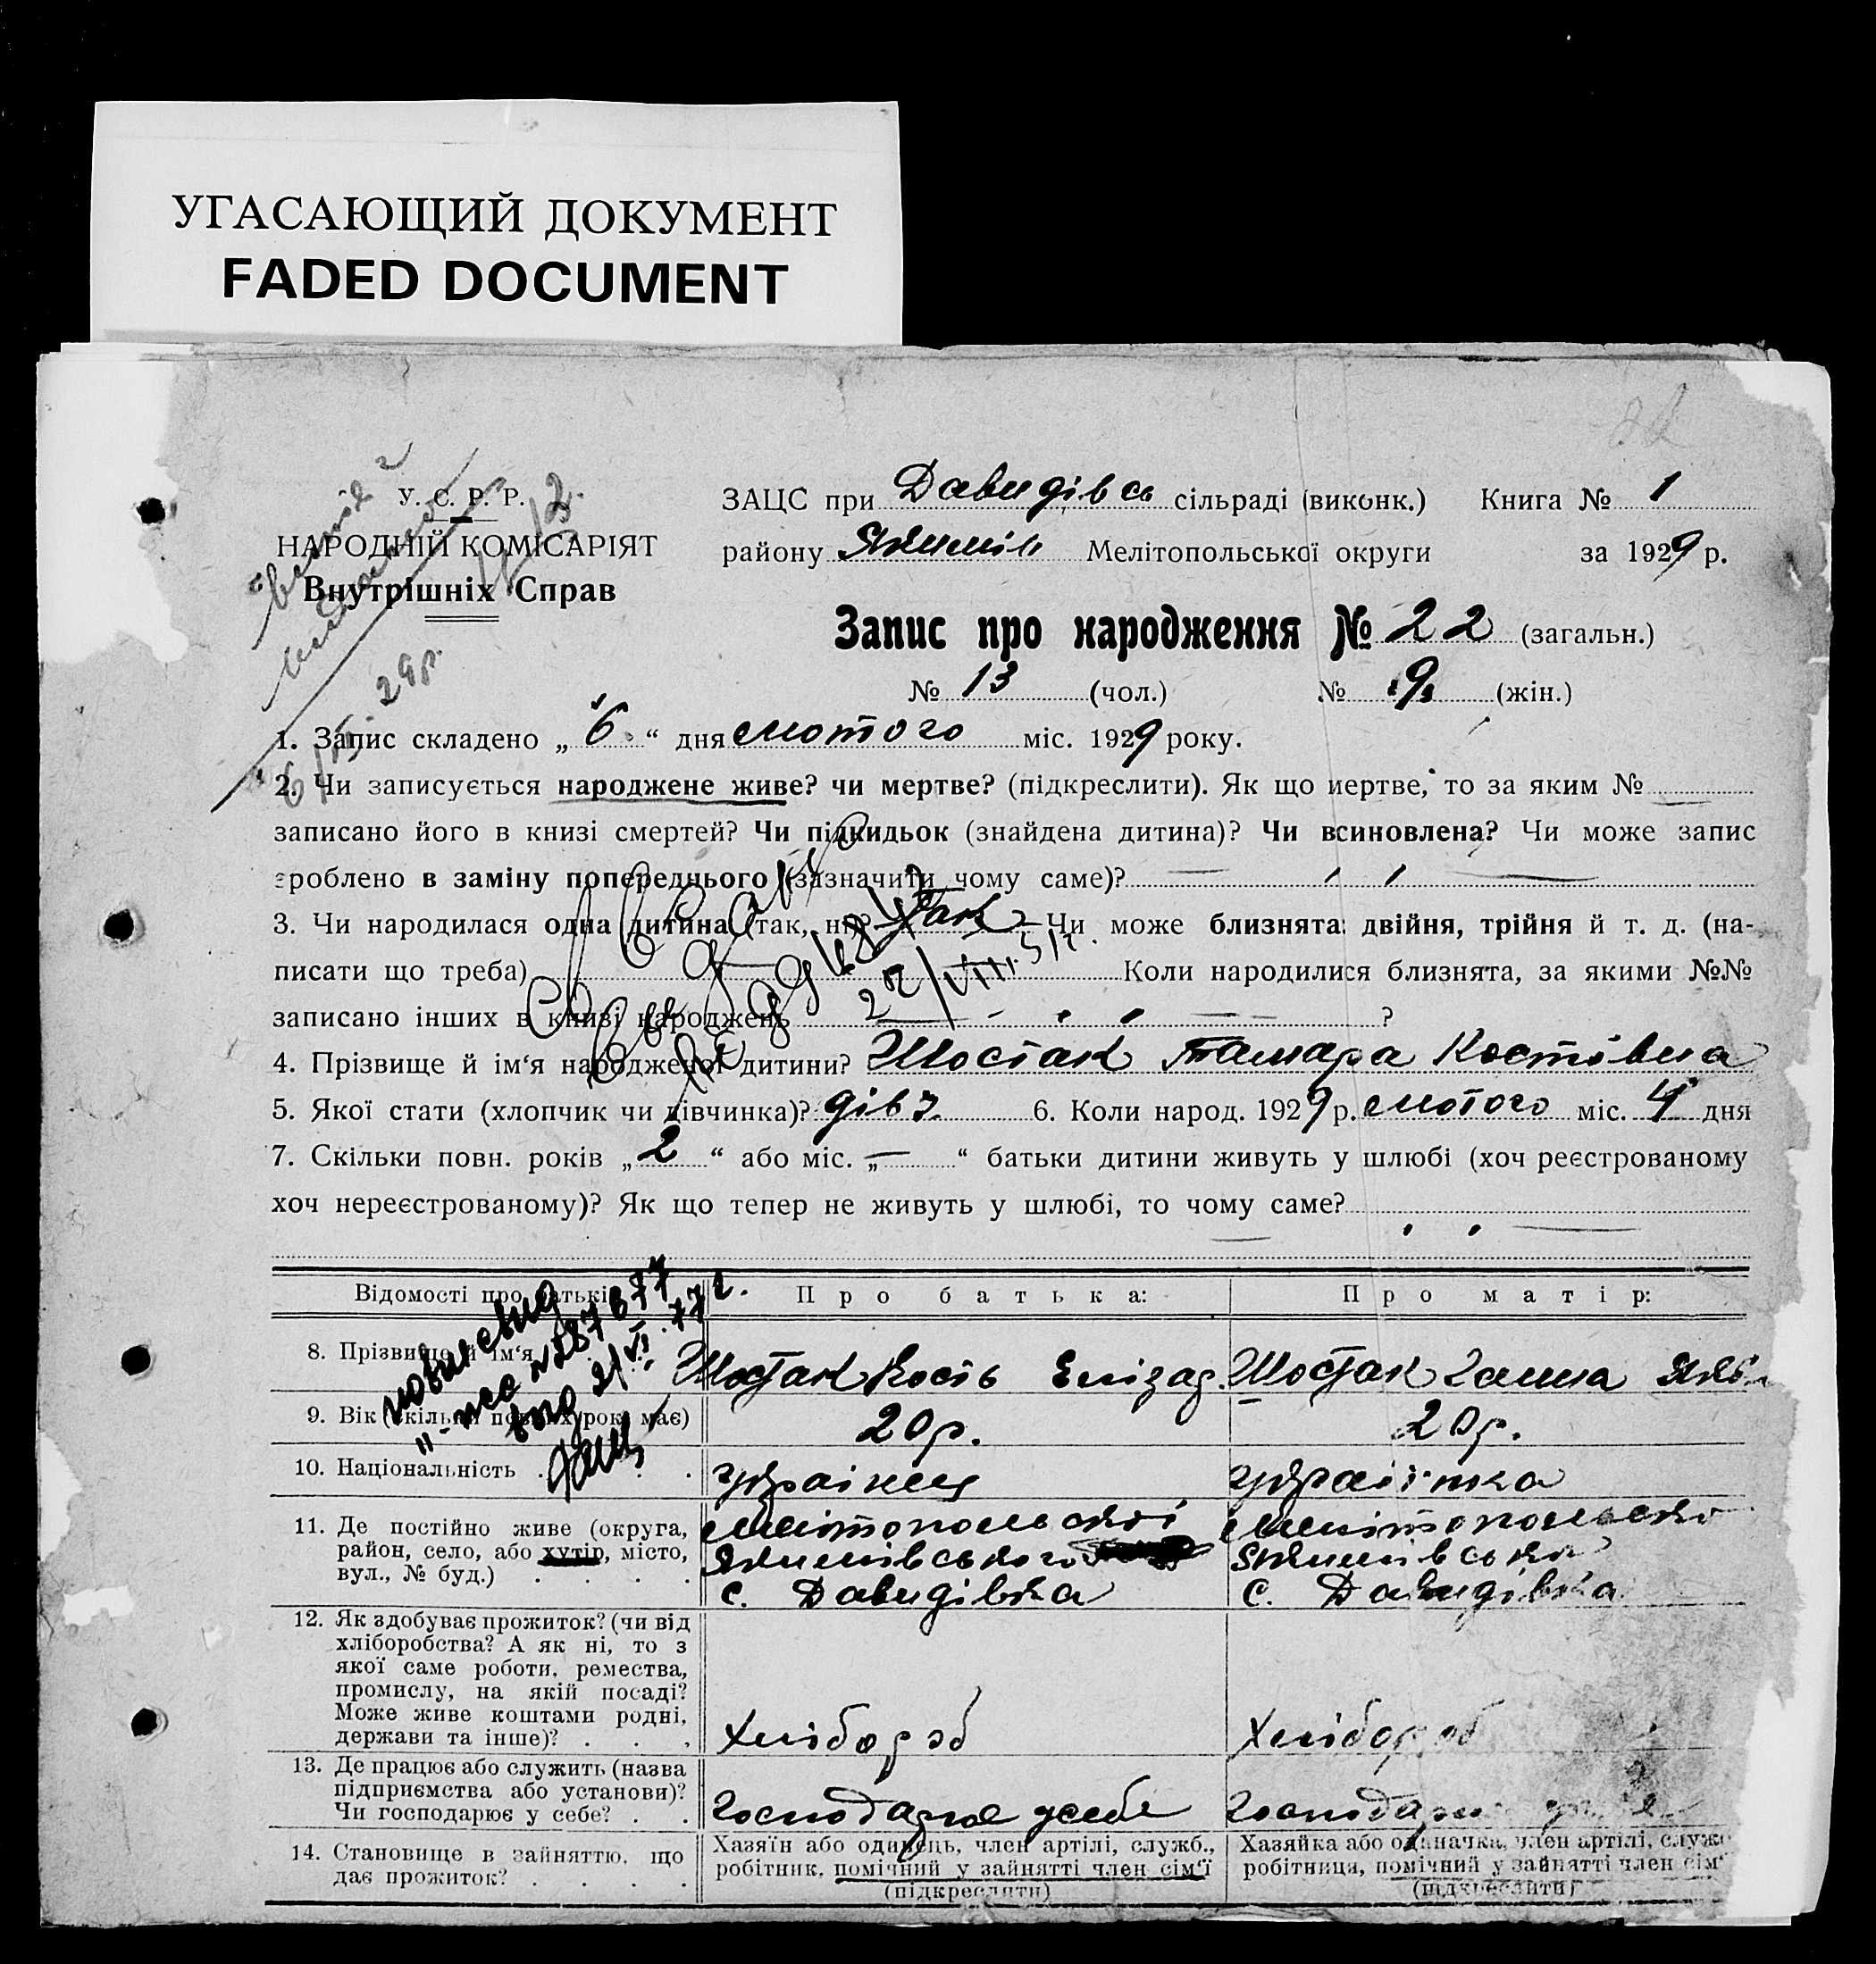 УГАСАЮЩИЙ ДОКУМЕНТ
FADED DOCUMENT
У. С. Р. Р.
НАРОДНІЙ КОМІСАРІЯТ
Внутрішніх Справ
29р.
ЗАЦС при Давидівсь сільраді (виконк.) Книга № 1
району Якимів Мелітопольської округи за 1929 р.
Запис про народження № 22 (загальн.)
№ 13 (чол.) № 9 (жін.)
1. Запис складено „ 6 “ дня лютого міс. 1929 року.
2. Чи записується народжене живе? чи мертве? (підкреслити). Як що мертве, то за яким №
записано його в книзі смертей? Чи підкидьок (знайдена дитина)? Чи всиновлена? Чи може запис
зроблено в заміну попереднього (зазначити чому саме)?
3. Чи народилася одна дитина (так, ні)? Так Чи може близнята: двійня, трійня й т. д. (на-
писати що треба) Коли народилися близнята, за якими №№
записано інших в книзі народжень ?
4. Прізвище й ім‘я народженої дитини? Шостак Тамара Костівна
5. Якої стати (хлопчик чи дівчинка)? дівч. 6. Коли народ. 1929 р. лютого міс. 4 дня
7. Скільки повн. років „ 2 “ або міс. „ — “ батьки дитини живуть у шлюбі (хоч реєстрованому
хоч нереєстрованому)? Як що тепер не живуть у шлюбі, то чому саме?
Відомості про батьків Про батька: Про матір:
8. Прізвище й ім‘я Шостак Кость Елізар. Шостак Ганна Яків
9. Вік (скільки повних рок. має) 20р. 20р.
10. Національність українец українка
11. Де постійно живе (округа, район, село, або хутір, місто, вул., № буд.)
Мелітопольської
Якимівського
с. Давидівка
Мелітопольсько
Якимівсько
с. Давидівка
12. Як здобуває прожиток? (чи від
хліборобства? А як ні, то з
якої саме роботи, ремества,
промислу, на якій посаді?
Може живе коштами родні,
держави та інше)? Хлібороб Хлібороб
13. Де працює або служить (назва
підприємства або установи)?
Чи господарює у себе? Господарює у себе Господарює
14. Становище в зайняттю, що
дає прожиток?
Хазяїн або одинець, член артілі, служб.,
робітник, помічний у зайнятті член сім‘ї
(підкреслити)
Хазяйка або одиначка, член артілі, служ
робітниця, помічний у зайнятті член сім‘
(підкреслити)